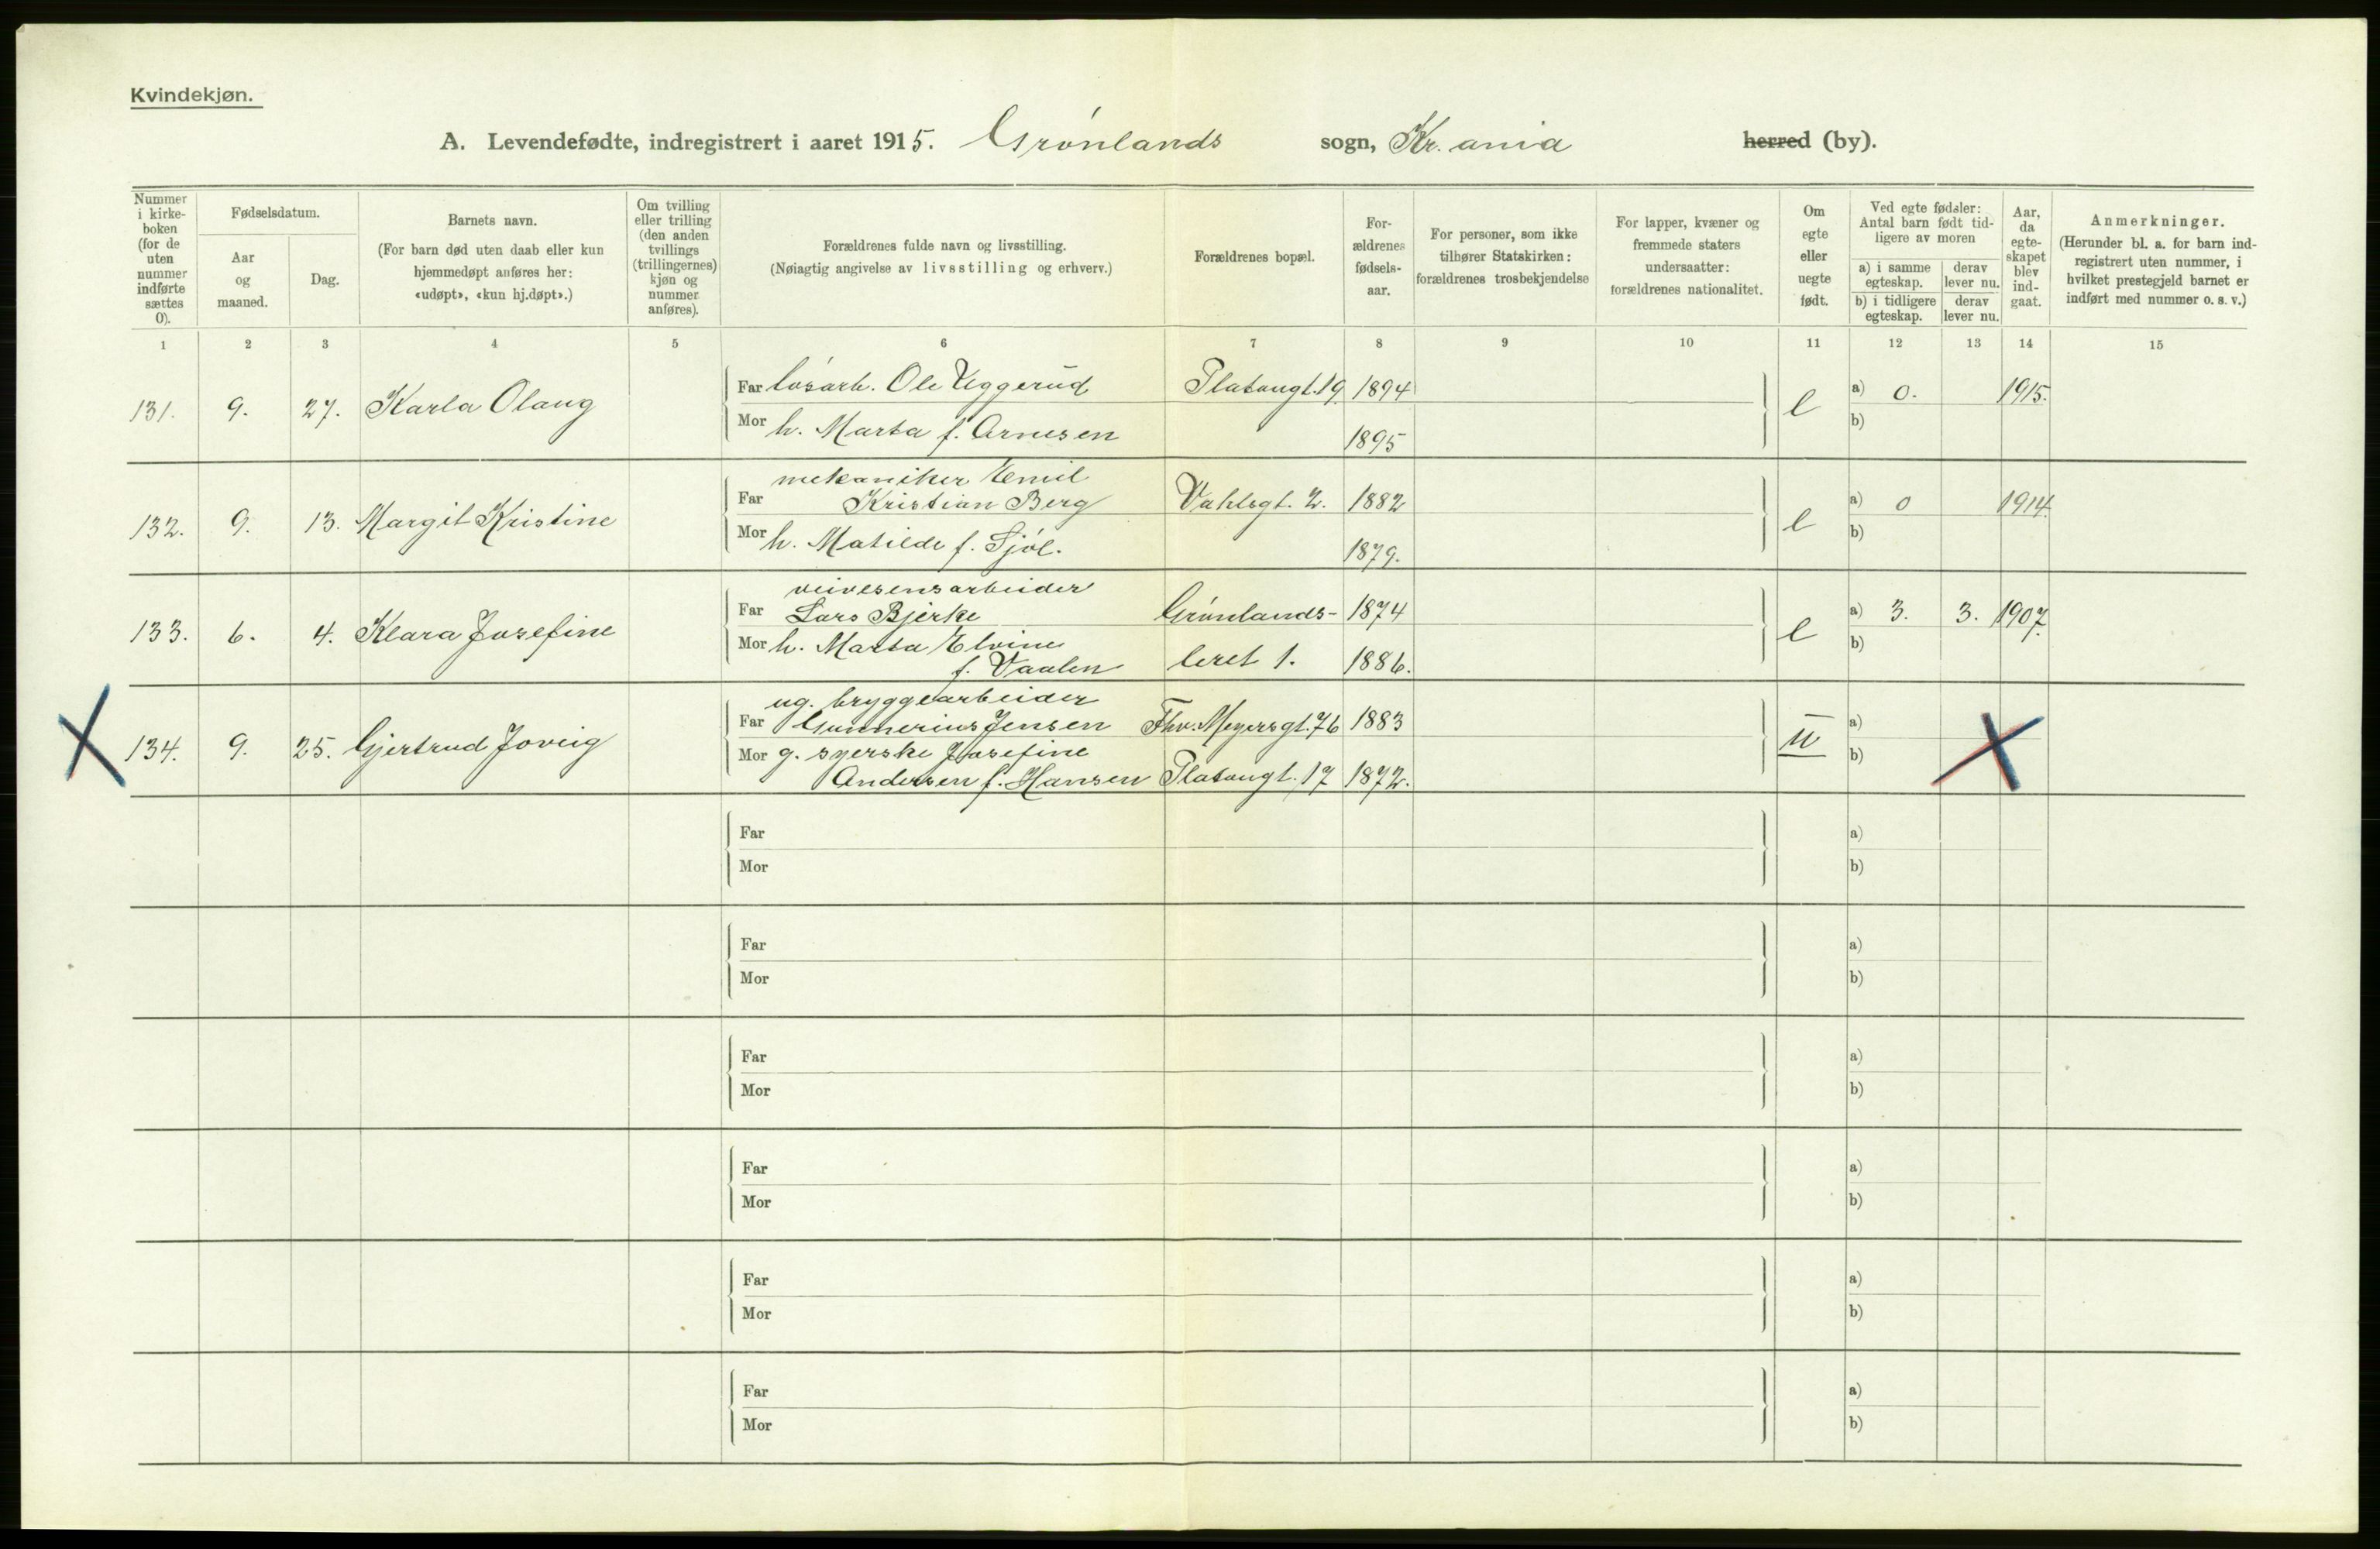 Kvindekjøn.
A. Levendefødte, indregistrert i aaret 1915. Grønlands sogn, Kr.ania herred (by).
Nummer i kirke- boken (for de uten nummer indførte sættes 0).
Fødselsdatum.
Aar og maaned.
Dag.
Barnets navn.
(For barn død uten daab eller kun hjemmedøpt anføres her: «udøpt», «kun hj.døpt».)
Om tvilling eller trilling (den anden tvillings (trillingernes) kjøn og nummer anføres).
Forældrenes fulde navn og livsstilling.
(Nøiagtig angivelse av livsstilling og erhverv.)
Forældrenes bopæl.
For- ældrenes fødsels- aar.
For personer, som ikke tilhører Statskirken: forældrenes trosbekjendelse
For lapper, kvæner og fremmede staters undersaatter: forældrenes nationalitet.
Om egte eller uegte født.
Ved egte fødsler: Antal barn født tid- ligere av moren
a) i samme egteskap.
derav lever nu.
b) i tidligere egteskap.
derav lever nu.
Aar, da egte- skapet blev ind- gaat.
Anmerkninger.
(Herunder bl. a. for barn ind- registrert uten nummer, i hvilket prestegjeld barnet er indført med nummer o. s. v.)
1 2 3 4 5 6 7 8 9 10 11 12 13 14 15
Far løsarb. Ole Uggerud Platougt.19 1894 a) 0. 1915.
131. 9. 27. Karla Olaug e
Mor h. Marta f. Arnesen 1895 b)
mekaniker Emil
Far Kristian Berg Vahlsgt. 2. 1882 a) 0 1914.
132. 9. 13. Margit Kristine e
Mor h. Matilde f. Sjøl. 1879. b)
veivesensarbeider
Far Lars Bjerke Grønlands- 1874 a) 3. 3. 1907.
133. 6. 4. Klara Josefine e
Mor h. Marta Elvine b)
f. Vaalen leret 1. 1886.
ug. bryggearbeider
Far Gunnerius Jensen Thv. Meyersgt.76 1883 a)
134. 9. 25. Gjertrud Joveig u
Mor g. syerske Josefine b)
Andersen f. Hansen Platougt. 17 1872.
Far a)
Mor b)
Far a)
Mor b)
Far a)
Mor b)
Far a)
Mor b)
Far a)
Mor b)
Far a)
Mor b)